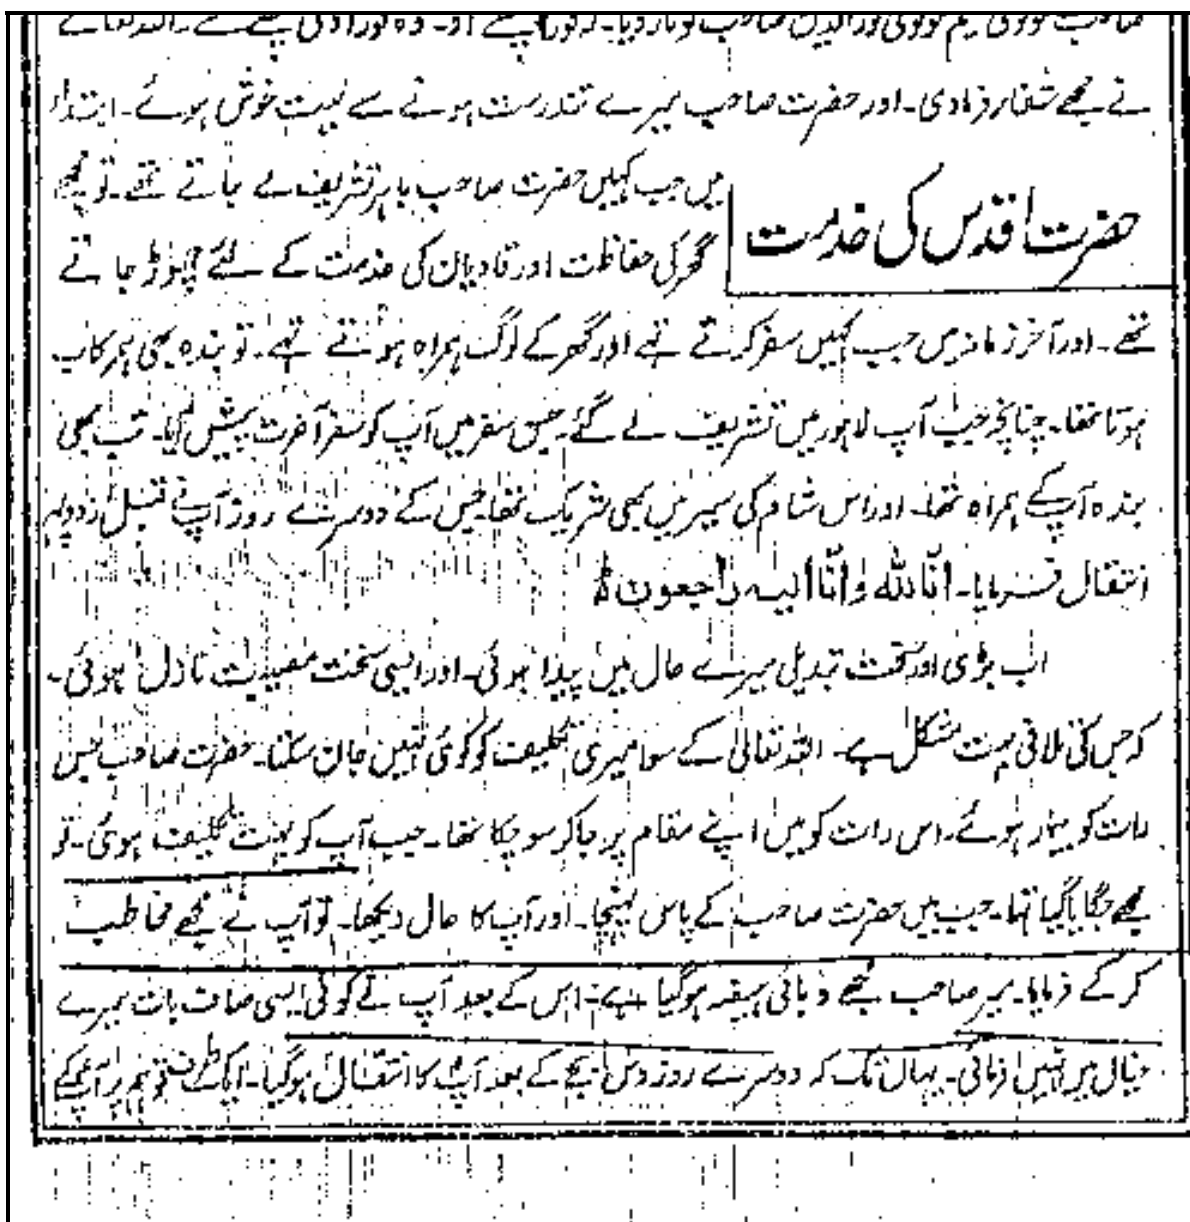 صاحب مولوی حکیم مولوی نورالدین صاحب کو تار دیا۔ کہ فوراً چلے آؤ۔ وہ فوراً آ گئے۔ اللہ تعالےٰ
نے مجھے شفاء فرمادی۔ اور حضرت صاحب میرے تندرست ہونے سے بہت خوش ہوئے۔ ابتداء
حضرت اقدس کی خدمت
میں جب کہیں حضرت صاحب باہر تشریف لے جاتے تھے۔ تو مجھے
گھر کی حفاظت اور قادیان کی خدمت کے لئے چھوڑ جاتے
تھے۔ اور آخر زمانہ میں جب کہیں سفر کرتے تھے اور گھر کے لوگ ہمراہ ہوتے تھے۔ تو بندہ بھی ہمرکاب
ہوتا تھا۔ چنانچہ جب آپ لاہور میں تشریف لے گئے۔ جس سفر میں آپ کو سفر آخرت پیش آیا۔ تب بھی
بندہ آپکے ہمراہ تھا۔ اور اس شام کی سیر میں بھی شریک تھا جس کے دوسرے روز آپ نے قبل از دوپہر
انتقال فرمایا۔ انّا للہ وانّا الیہ راجعون
اب بڑی اور سخت تبدیلی میرے حال میں پیدا ہوئی۔ اور ایسی سخت مصیبت نازل ہوئی۔
کہ جس کی تلافی بہت مشکل ہے۔ اللہ تعالیٰ کے سوا میری تکلیف کو کوئی نہیں جان سکتا۔ حضرت صاحب جس
رات کو بیمار ہوئے۔ اس رات کو میں اپنے مقام پر جاکر سو چکا تھا۔ جب آپ کو بہت تکلیف ہوئی۔ تو
مجھے جگایا گیا تھا۔ جب میں حضرت صاحب کے پاس پہنچا۔ اور آپ کا حال دیکھا۔ تو آپ نے مجھے مخاطب
کر کے فرمایا۔ میر صاحب مجھے وبائی ہیضہ ہوگیا ہے۔ اس کے بعد آپ نے کوئی ایسی صاف بات میرے
خیال میں نہیں فرمائی۔ یہاں تک کہ دوسرے روز دس بجے کے بعد آپ کا انتقال ہوگیا۔ ایک طرف تو ہم پر آپکے